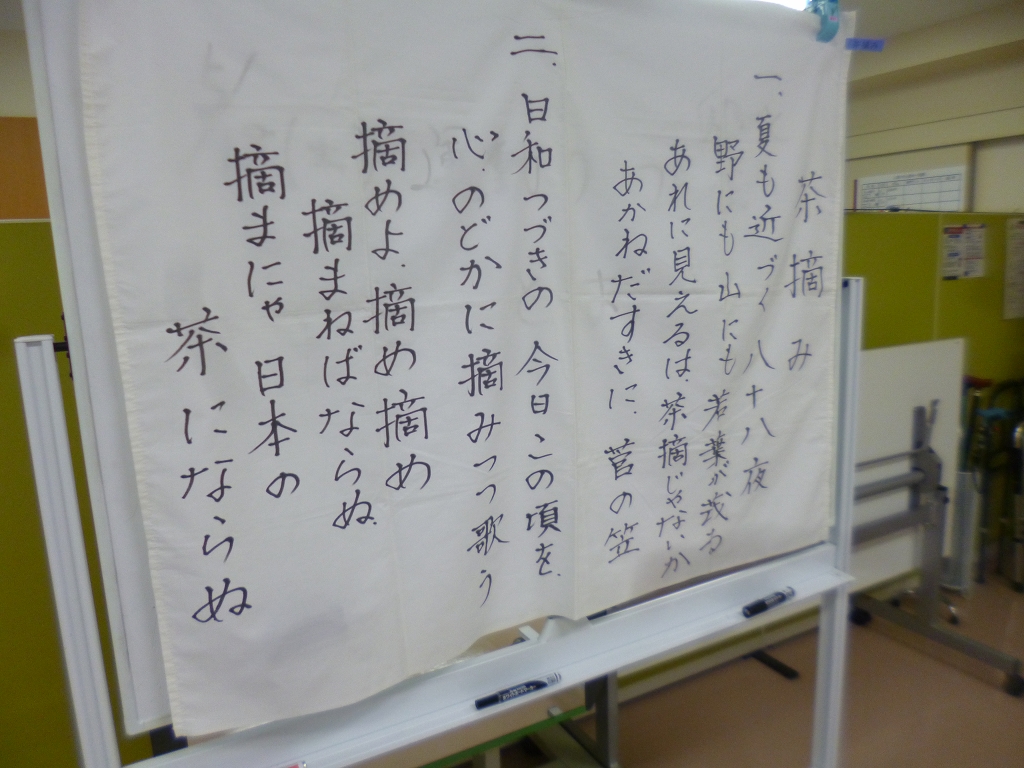 茶摘み
一、夏も近づく八十八夜
野にも山にも若葉が茂る
あれに見えるは、茶摘じゃないか
あかねだすきに、菅の笠
二、日和つづきの今日この頃を、
心、のどかに摘みつつ歌う
摘めよ、摘め摘め
摘まねばならぬ、
摘まにゃ日本の
茶にならぬ